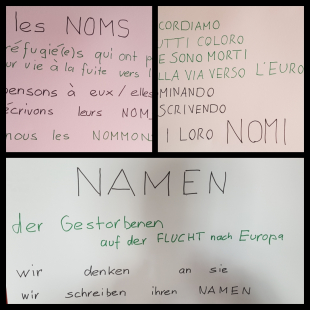 les NOMS
réfugié(e)s qui ont p
ur vie à la fuite vers l
pensons à eux / elles
écrivons leurs NOM
nous les NOMMONS
CORDIAMO
UTTI COLORO
E SONO MORTI
LLA VIA VERSO L'EURO
MINANDO
SCRIVENDO
I LORO NOMI
NAMEN
der Gestorbenen
auf der FLUCHT nach Europa
wir denken an sie
wir schreiben ihren NAMEN